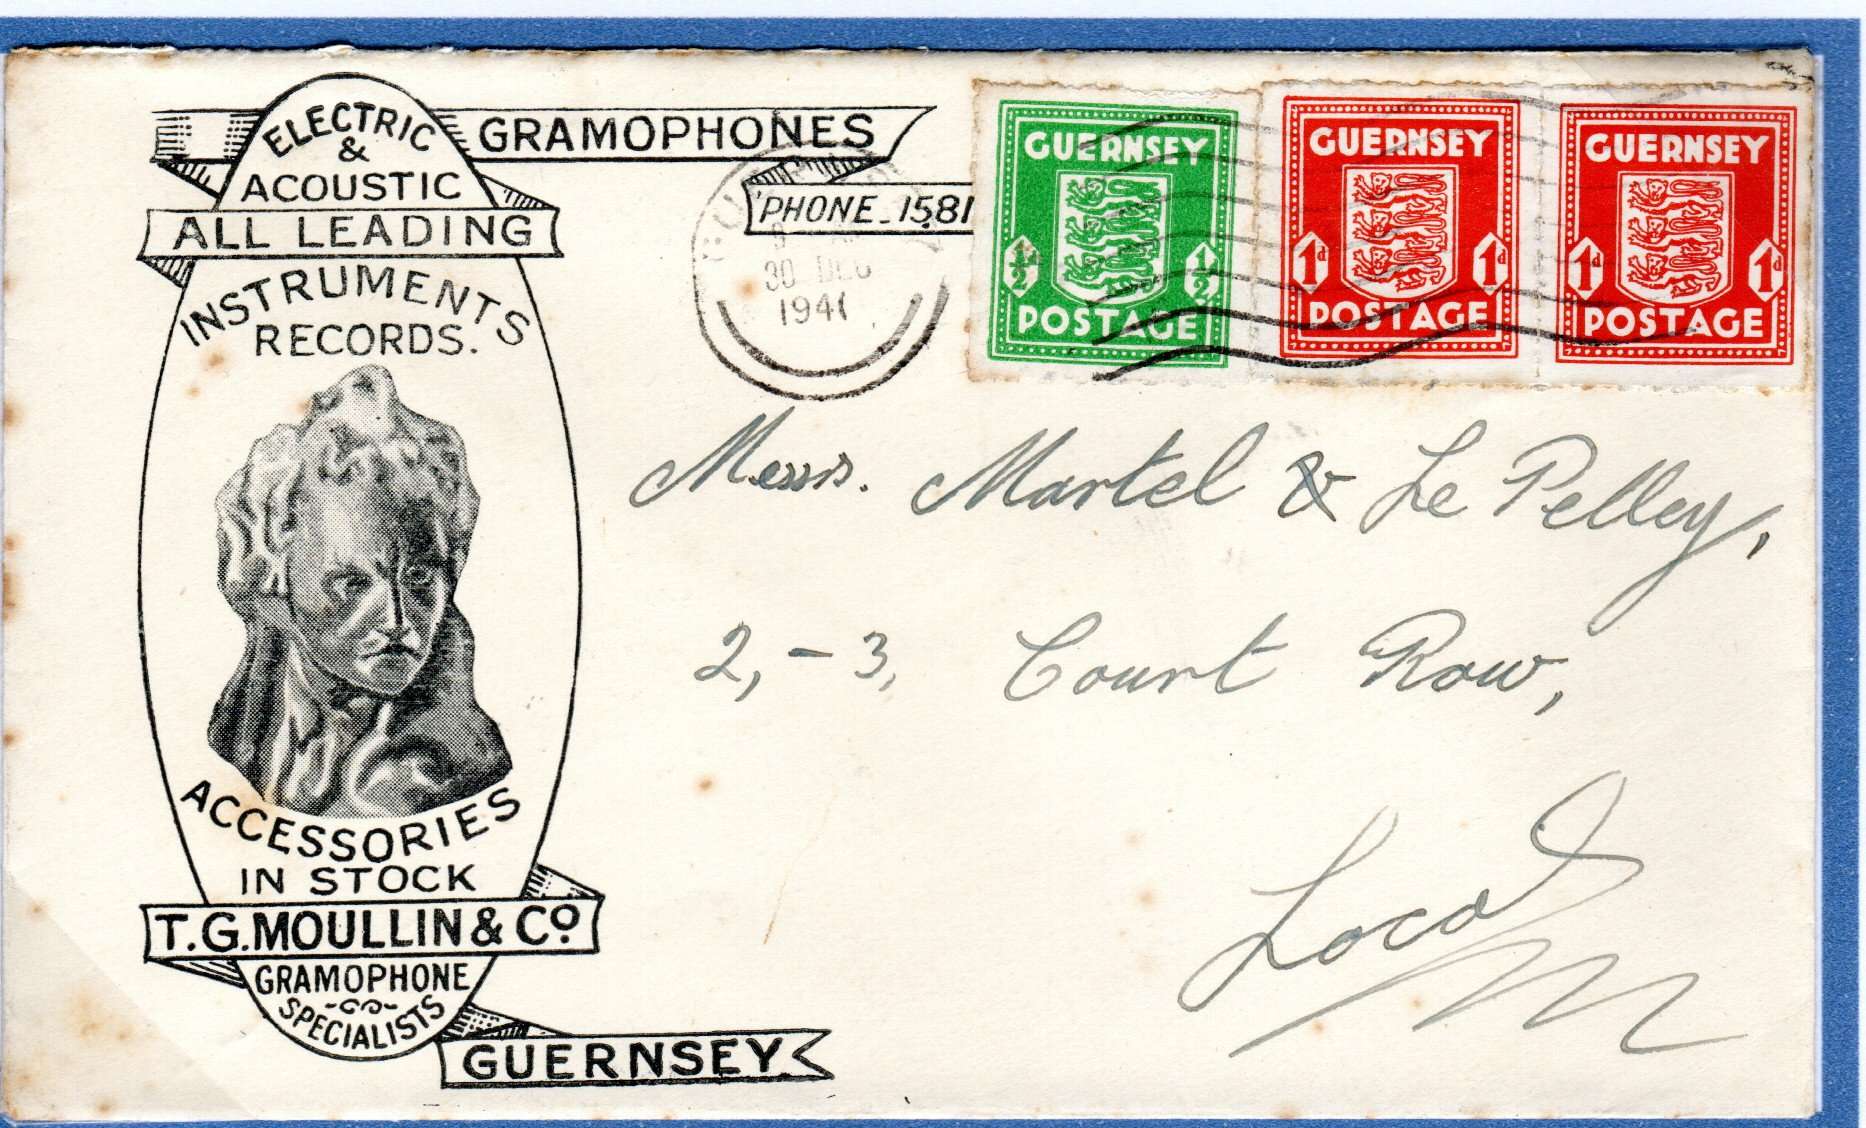 ELECTRIC
&
ACOUSTIC
GRAMOPHONES
'PHONE_1581
ALL LEADING
INSTRUMENTS
RECORDS.
ACCESSORIES
IN STOCK
T.G.MOULLIN & Cº
GRAMOPHONE
SPECIALISTS
GUERNSEY
30 DEC
1941
GUERNSEY
½d ½
POSTAGE
GUERNSEY
1d 1d
POSTAGE
GUERNSEY
1d 1d
POSTAGE
Messrs. Martel & Le Pelley,
2, - 3, Court Row,
Local